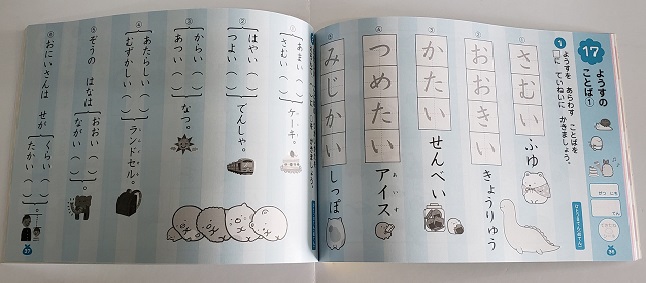 17
ようすの
ことば①
1
ようすを あらわす ことばを
□に ていねいに かきましょう。
① さむい ふゆ
② おおきい きょうりゅう
③ かたい せんべい
④ つめたい アイス
あいす
⑤ みじかい しっぽ
① あまい（ ）
さむい（ ）
ケーキ。
② はやい（ ）
つよい（ ）
でんしゃ。
③ からい（ ）
あつい（ ）
なつ。
④ あたらしい（ ）
むずかしい（ ）
ランドセル。
⑤ ぞうの はなは
おおい（ ）
ながい（ ）
。
⑥ おにいさんは せが
くらい（ ）
たかい（ ）
。
37